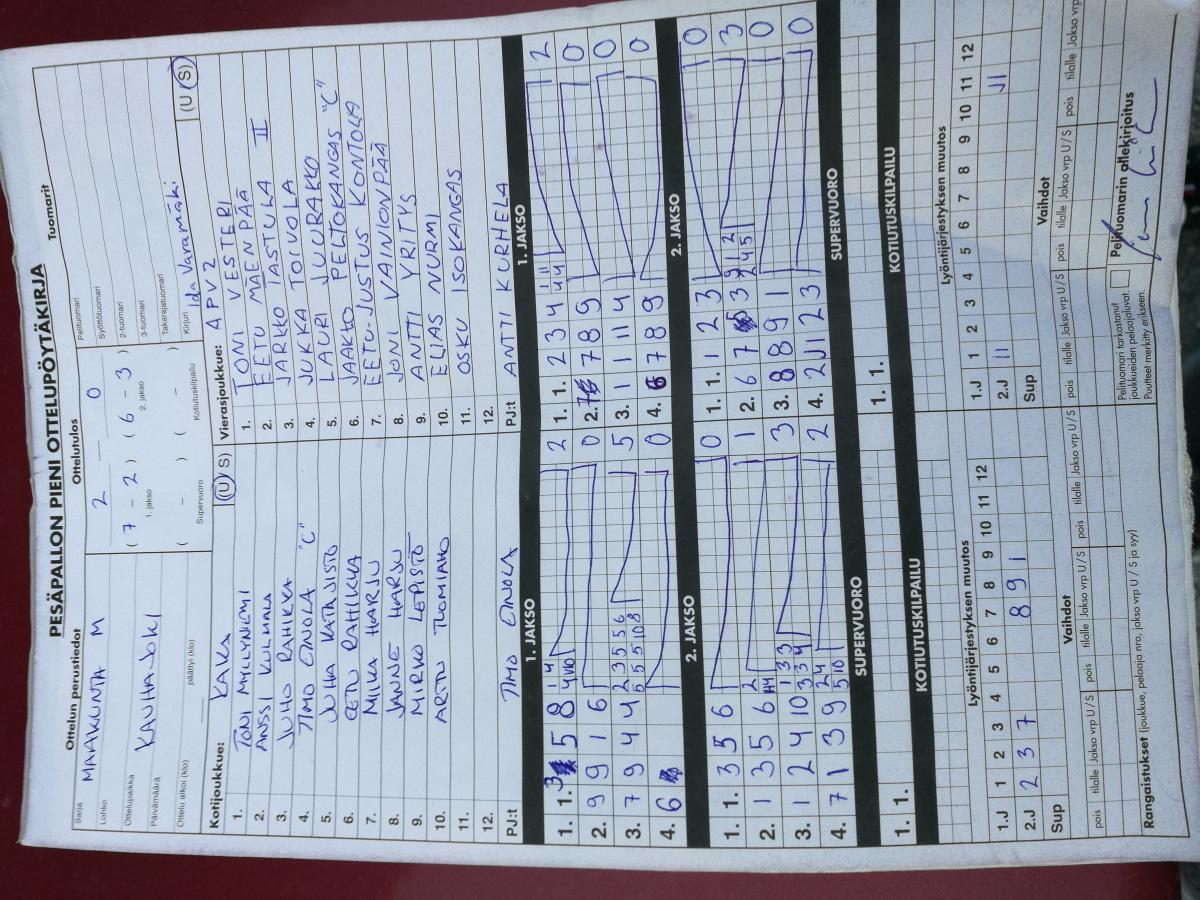 PESÄPALLON PIENI OTTELUPÖYTÄKIRJA
Ottelun perustiedot Ottelutulos Tuomarit
Sarja MAAKUNTA M
Lohko
Ottelupaikka KAUHAJOKI
Päivämäärä
Ottelu alkoi (klo) päättyi (klo)
2 – 0
( 7 – 2 ) ( 6 – 3 )
1. jakso 2. jakso
( – ) ( – )
Supervuoro Kotiutuskilpailu
Pelituomari
Syöttötuomari
2-tuomari
3-tuomari
Takarajatuomari
Kirjuri Ida Varamäki
Kotijoukkue: KAKA (U S)
1. TONI MYLLYNIEMI
2. ANSSI KULMALA
3. JUHO RAHIKKA
4. TIMO ONOLA "C"
5. JUHA KATAJISTO
6. EETU RAHIKKA
7. MIIKA HARJU
8. JANNE HARJU
9. MIRKO LEPISTÖ
10. ARTU TUOMIAHO
11.
12.
PJ:t TIMO ONOLA
Vierasjoukkue: APV 2 (U S)
1. TONI VESTERI
2. EETU MÄENPÄÄ
3. JARKKO TASTULA II
4. JUKKA TOIVOLA
5. LAURI LUURAKKO
6. JAAKKO PELTOKANGAS "C"
7. EETU-JUSTUS KONTOLA
8. JONI VAINIONPÄÄ
9. ANTTI YRITYS
10. ELIAS NURMI
11. OSKU ISOKANGAS
12.
PJ:t ANTTI KURHELA
1. JAKSO
1. 1. 3 5 8 2
2. 9 9 1 6 0
3. 7 9 4 4 5
4. 6 0
2. JAKSO
1. 1. 3 5 6 0
2. 1 3 5 6 1
3. 1 2 4 10 3
4. 7 1 3 9 2
SUPERVUORO
1. 1.
KOTIUTUSKILPAILU
1. JAKSO
1. 1. 2 3 4 2
2. 7 8 9 0
3. 1 1 11 4 0
4. 6 7 8 9 0
2. JAKSO
1. 1. 1 2 3 0
2. 6 7 3 3
3. 8 8 9 1 0
4. 2 J1 2 3 0
SUPERVUORO
1. 1.
KOTIUTUSKILPAILU
Lyöntijärjestyksen muutos
1 2 3 4 5 6 7 8 9 10 11 12
1.J
2.J 2 3 7 8 9 1
Sup
Vaihdot
pois tilalle Jakso vrp U / S pois tilalle Jakso vrp U / S pois tilalle Jakso vrp U / S
Lyöntijärjestyksen muutos
1 2 3 4 5 6 7 8 9 10 11 12
1.J
2.J 11 J1
Sup
Vaihdot
pois tilalle Jakso vrp U / S pois tilalle Jakso vrp U / S pois tilalle Jakso vrp
Rangaistukset (joukkue, pelaaja nro, jakso vrp U / S ja syy)
Pelituomari tarkastanut
joukkueiden pelaajaluvat.
Puutteet merkitty erikseen.
Pelituomarin allekirjoitus